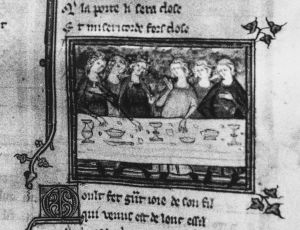 Q̃ la porte li sera close
Et misericorde fors close
Moult fet gñt ioie de son fil
Qui venus est de lonc essil